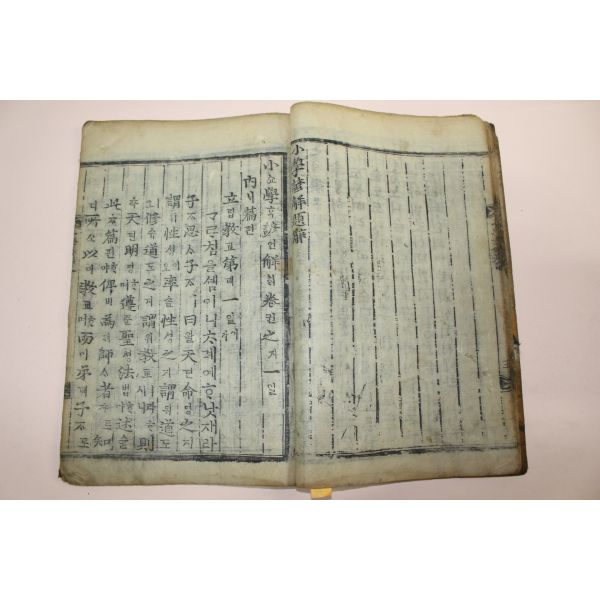 小學諺解題辭
小쇼學ᄒᆞᆨ諺언解ᄒᆡ卷권之지一일
內ᄂᆡ篇편
立립敎교第뎨一일
ᄀᆞᄅᆞ침을셤이니ᄎᆞ례예ᄒᆞ낫재라
子ᄌᆞ思ᄉᆞ子ᄌᆞㅣ曰왈天텬命명之지
謂위性셩이오率솔性셩之지謂위道도ㅣ
오修슈道도之지謂위敎교ㅣ라ᄒᆞ시니則
측天텬明명ᄒᆞ며遵쥰聖셩法법ᄒᆞ야述슐
此ᄎᆞ篇편ᄒᆞ야俾비爲위師ᄉᆞ者쟈로知
디所소以이敎교ᄒᆞ며而이弟뎨子ᄌᆞ로